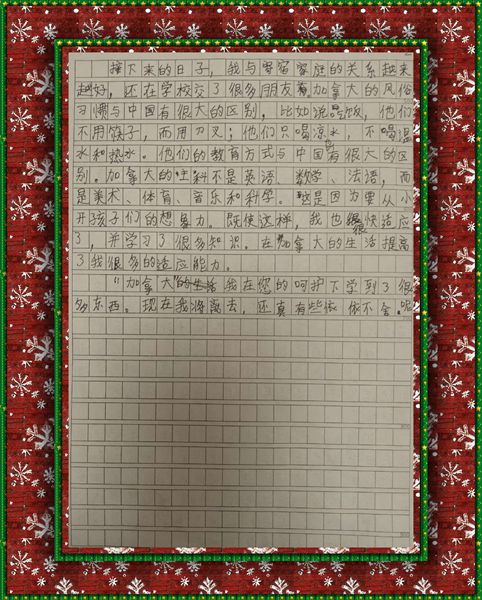 接下来的日子，我与寄宿家庭的关系越来
越好，还在学校交了很多朋友。加拿大的风俗
习惯与中国有很大的区别，比如说吃饭，他们
不用筷子，而用刀叉；他们只喝凉水，不喝温
水和热水。他们的教育方式也与中国有很大的区
别。加拿大的主科不是英语、数学、法语，而
是美术、体育、音乐和科学。这是因为要从小
开孩子们的想暴力。既使这样，我也很快适应
了，并学习了很多知识。在加拿大的生活提高
了我很多的适应能力。
“加拿大”的生活我在您的呵护下学到了很
多东西。现在我将离去，还真有些依依不舍呢